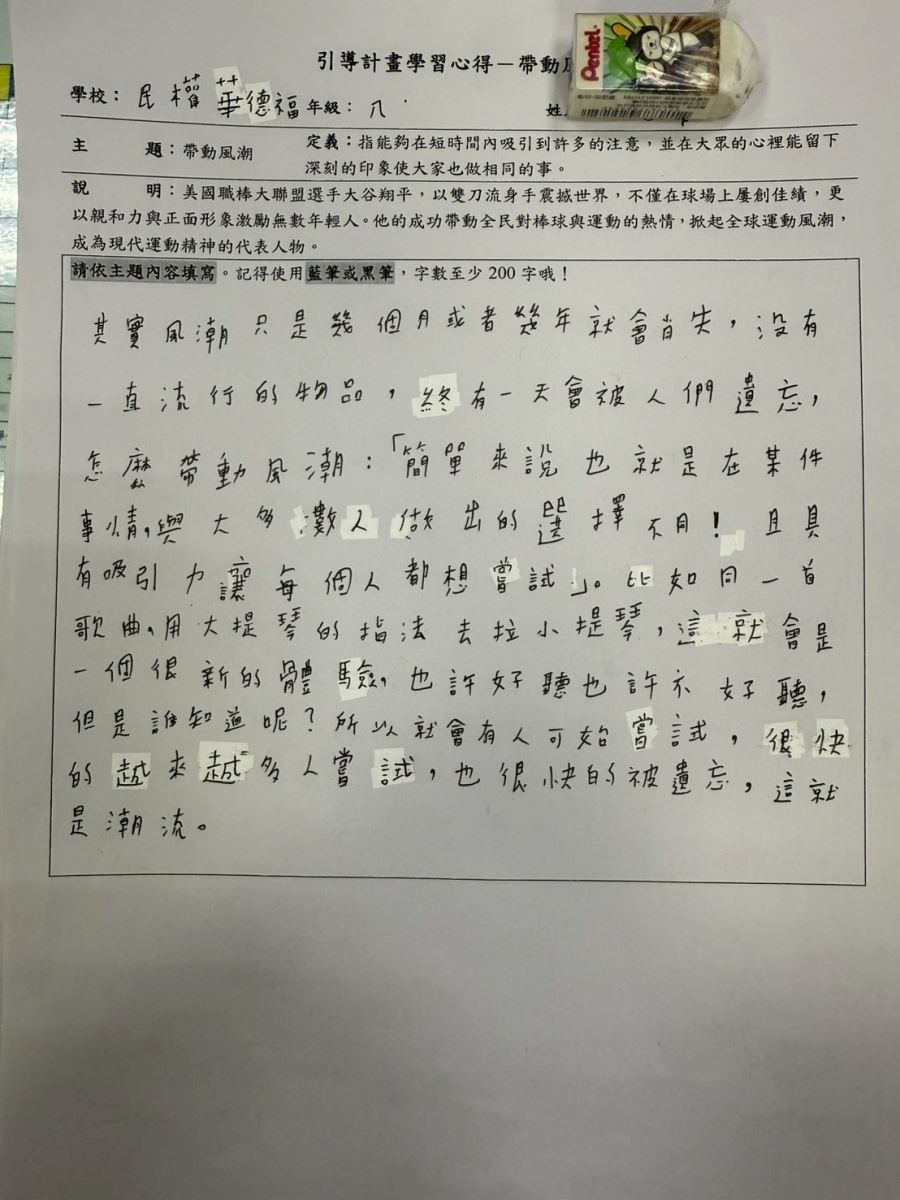 引導計畫學習心得－帶動
Pentel
學校：民權華德福年級：八 姓
主 題：帶動風潮 定義：指能夠在短時間內吸引到許多的注意，並在大眾的心裡能留下
深刻的印象使大家也做相同的事。
說 明：美國職棒大聯盟選手大谷翔平，以雙刀流身手震撼世界，不僅在球場上屢創佳績，更
以親和力與正面形象激勵無數年輕人。他的成功帶動全民對棒球與運動的熱情，掀起全球運動風潮，
成為現代運動精神的代表人物。
請依主題內容填寫。記得使用藍筆或黑筆，字數至少 200 字哦！
其實風潮只是幾個月或者幾年就會消失，沒有
一直流行的物品，終有一天會被人們遺忘，
怎麼帶動風潮：「簡單來說也就是在某件
事情，與大多數人做出的選擇不同！且具
有吸引力讓每個人都想嘗試」。比如同一首
歌曲，用大提琴的指法去拉小提琴，這就會是
一個很新的體驗，也許好聽也許不好聽，
但是誰知道呢？所以就會有人可始嘗試，很快
的越來越多人嘗試，也很快的被遺忘，這就
是潮流。